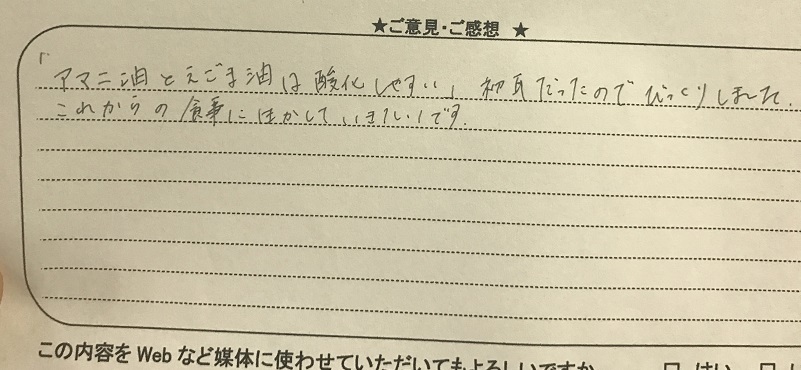 ★ご意見・ご感想 ★
「アマニ油とえごま油は酸化しやすい」初耳だったのでびっくりしました。
これからの食事にいかしていきたいです。
この内容をWebなど媒体に使わせていただいてもよろしいですか
□ はい